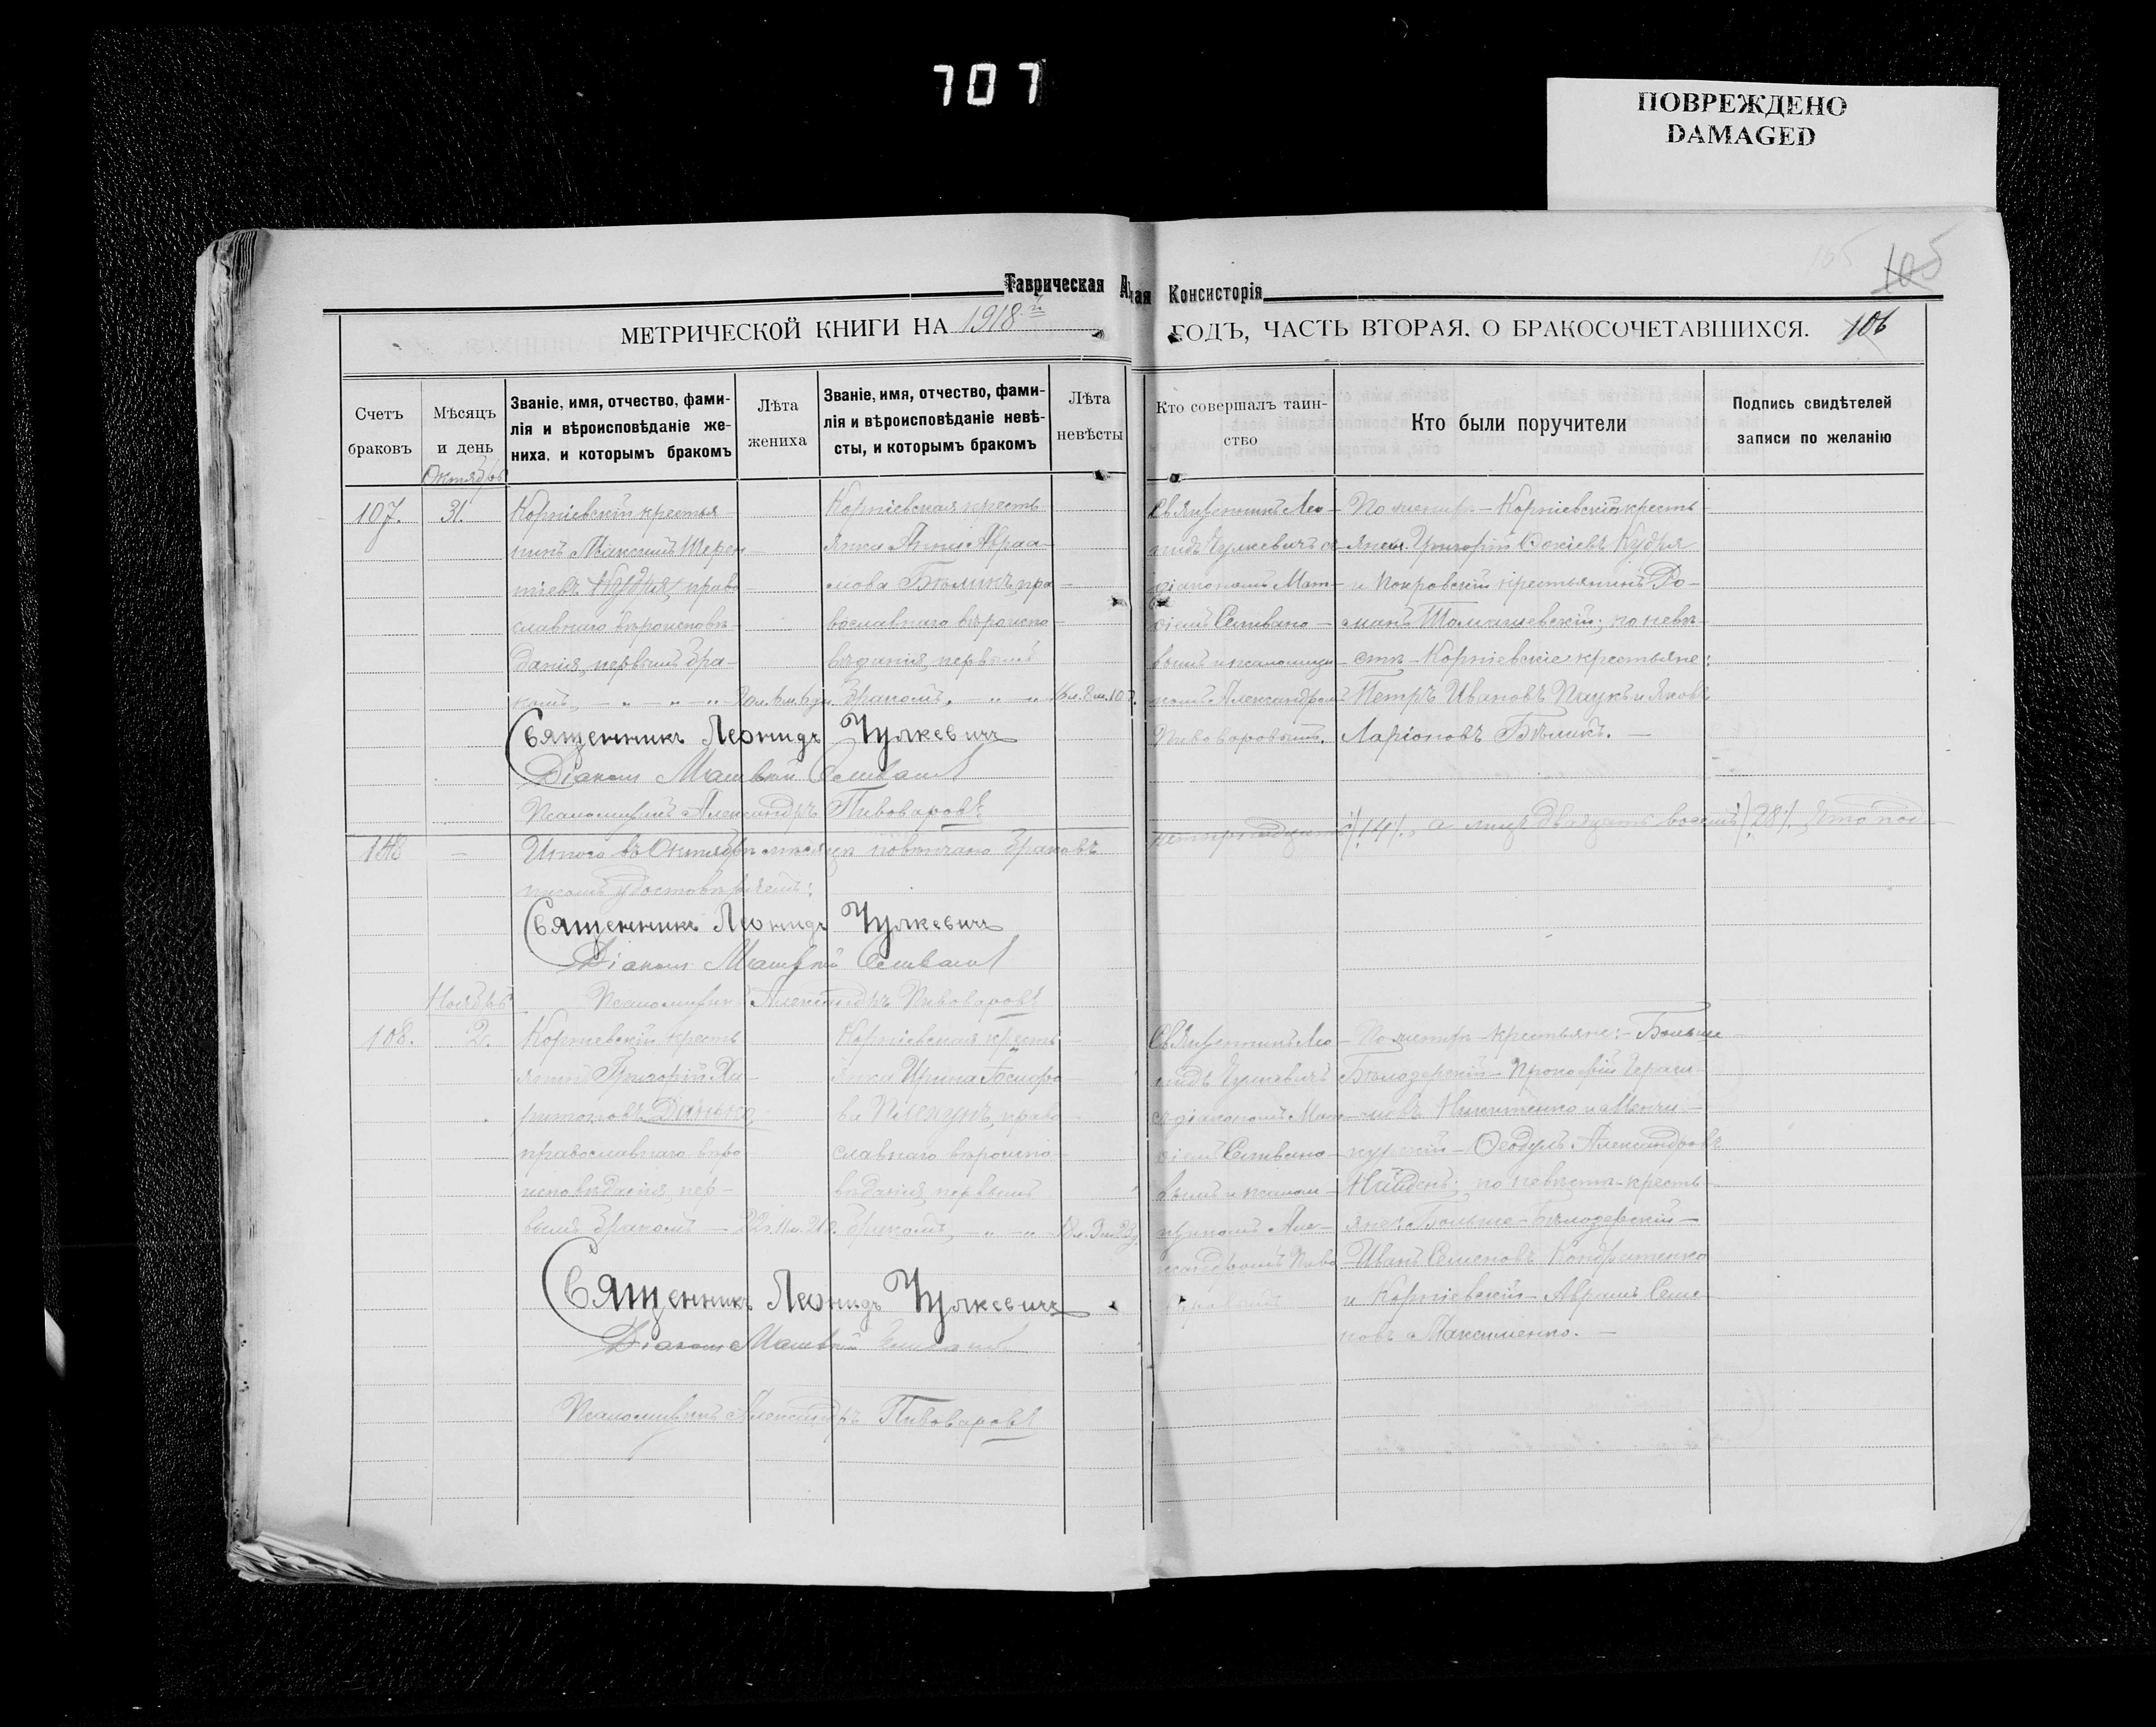 707
ПОВРЕЖДЕНО
DAMAGED
105
105
Таврическая
Консисторія
МЕТРИЧЕСКОЙ КНИГИ НА 1918 й
ГОДЪ, ЧАСТЬ ВТОРАЯ. О БРАКОСОЧЕТАВШИХСЯ. 106
Счетъ браковъ
Мѣсяцъ и день
Званіе, имя, отчество, фами-
лія и вѣроисповѣданіе же-
ниха, и которымъ бракомъ
Лѣта
жениха
Званіе, имя, отчество, фами-
лія и вѣроисповѣданіе невѣ-
сты, и которымъ бракомъ
Лѣта
невѣсты
Кто совершалъ таин-
ство
Кто были поручители
Подпись свидѣтелей
записи по желанію
Октябрь
107.
31.
Корніевскій крестья-
нинъ Максимъ Терен-
тіевъ Кудря, право-
славнаго вѣроисповѣ-
данія, первымъ бра-
комъ
Корніевская кресть-
янка Анна Авраа-
мова Бѣликъ, пра-
вославнаго вѣроиспо-
вѣданія, первымъ
бракомъ
Священникъ Лео-
нидъ Чулкевичъ съ
діакономъ Мат-
ѳіемъ Селивано-
вымъ и псаломщи-
комъ Александромъ
Пивоваровымъ.
По женихѣ – Корніевскій кресть-
Григорій Кудря
и Покровскій крестьянинъ Ро-
манъ Томашевскій; по невѣ-
стѣ – Корніевскіе крестьяне:
Петръ Ивановъ Паукъ и Яковъ
Ларіоновъ Бѣликъ. –
Священникъ Леонидъ Чулкевичъ
Діаконъ Матвѣй Селивановъ
Псаломщикъ Александръ Пивоваровъ
Итого въ Октябрѣ мѣсяцѣ повѣнчано браковъ
четырнадцать /14/, а лицъ двадцать восемь /28/, что под-
писомъ удостовѣряемъ:
Священникъ Леонидъ Чулкевичъ
Діаконъ Матвѣй Селивановъ
Псаломщикъ Александръ Пивоваровъ
Ноябрь
108.
2.
Корніевскій кресть-
янинъ Григорій Ха-
ритоновъ Данько,
православнаго вѣро-
исповѣданія, пер-
вымъ бракомъ –
Корніевская кресть-
янка Ирина
право-
славнаго вѣроиспо-
вѣданія, первымъ
бракомъ,
Священникъ Лео-
нидъ Чулкевичъ
съ діакономъ Мат-
ѳіемъ Селивано-
вымъ и псалом-
щикомъ Але-
ксандромъ Пиво-
варовымъ
По женихѣ – крестьяне: – Больше
Бѣлозерскій – Прокофій Гераси-
мовъ Никитенко и Менчи-
курскій – Ѳеодулъ Александровъ
Найденъ; по невѣстѣ – кресть-
яне: Больше – Бѣлозерскій –
Иванъ Семеновъ Кондратенко
и Корніевскій – Аврамъ Семе-
новъ Максименко. –
Священникъ Леонидъ Чулкевичъ
Діаконъ Матвѣй Селивановъ
Псаломщикъ Александръ Пивоваровъ